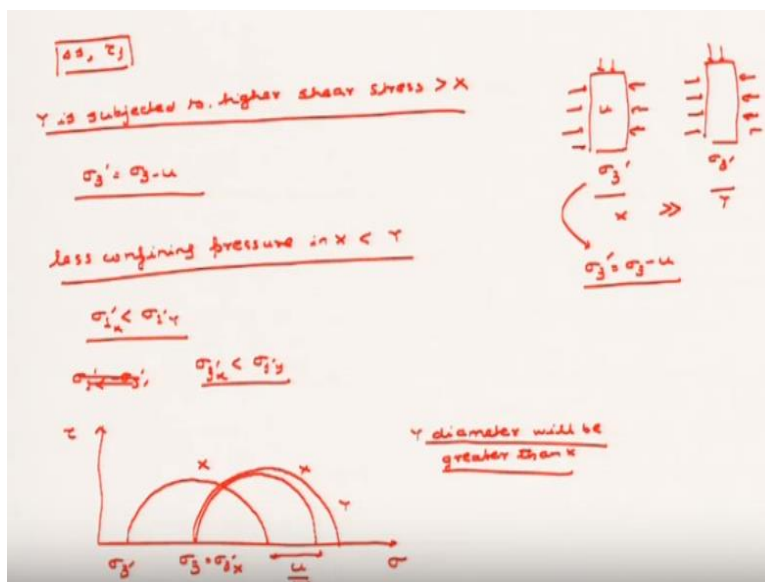 Δσ, τf
Y is subjected to higher shear stress > X
σ3' = σ3 - u
less confining pressure in X < Y
σ1'x < σ1'Y
σ3'x < σ3'y
u
σ3'
σ3'
X >> Y
σ3' = σ3 - u
Y diameter will be
greater than X
τ
X
X
Y
σ3'
σ3 = σ3'x
u
σ